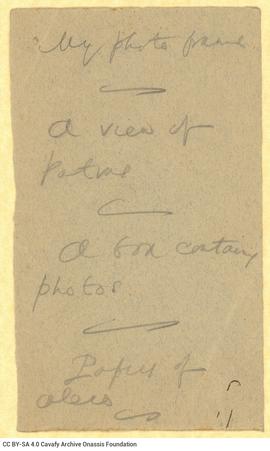 My photo frame
A view of
A box contain
photos
Papers of
CC BY-SA 4.0 Cavafy Archive Onassis Foundation